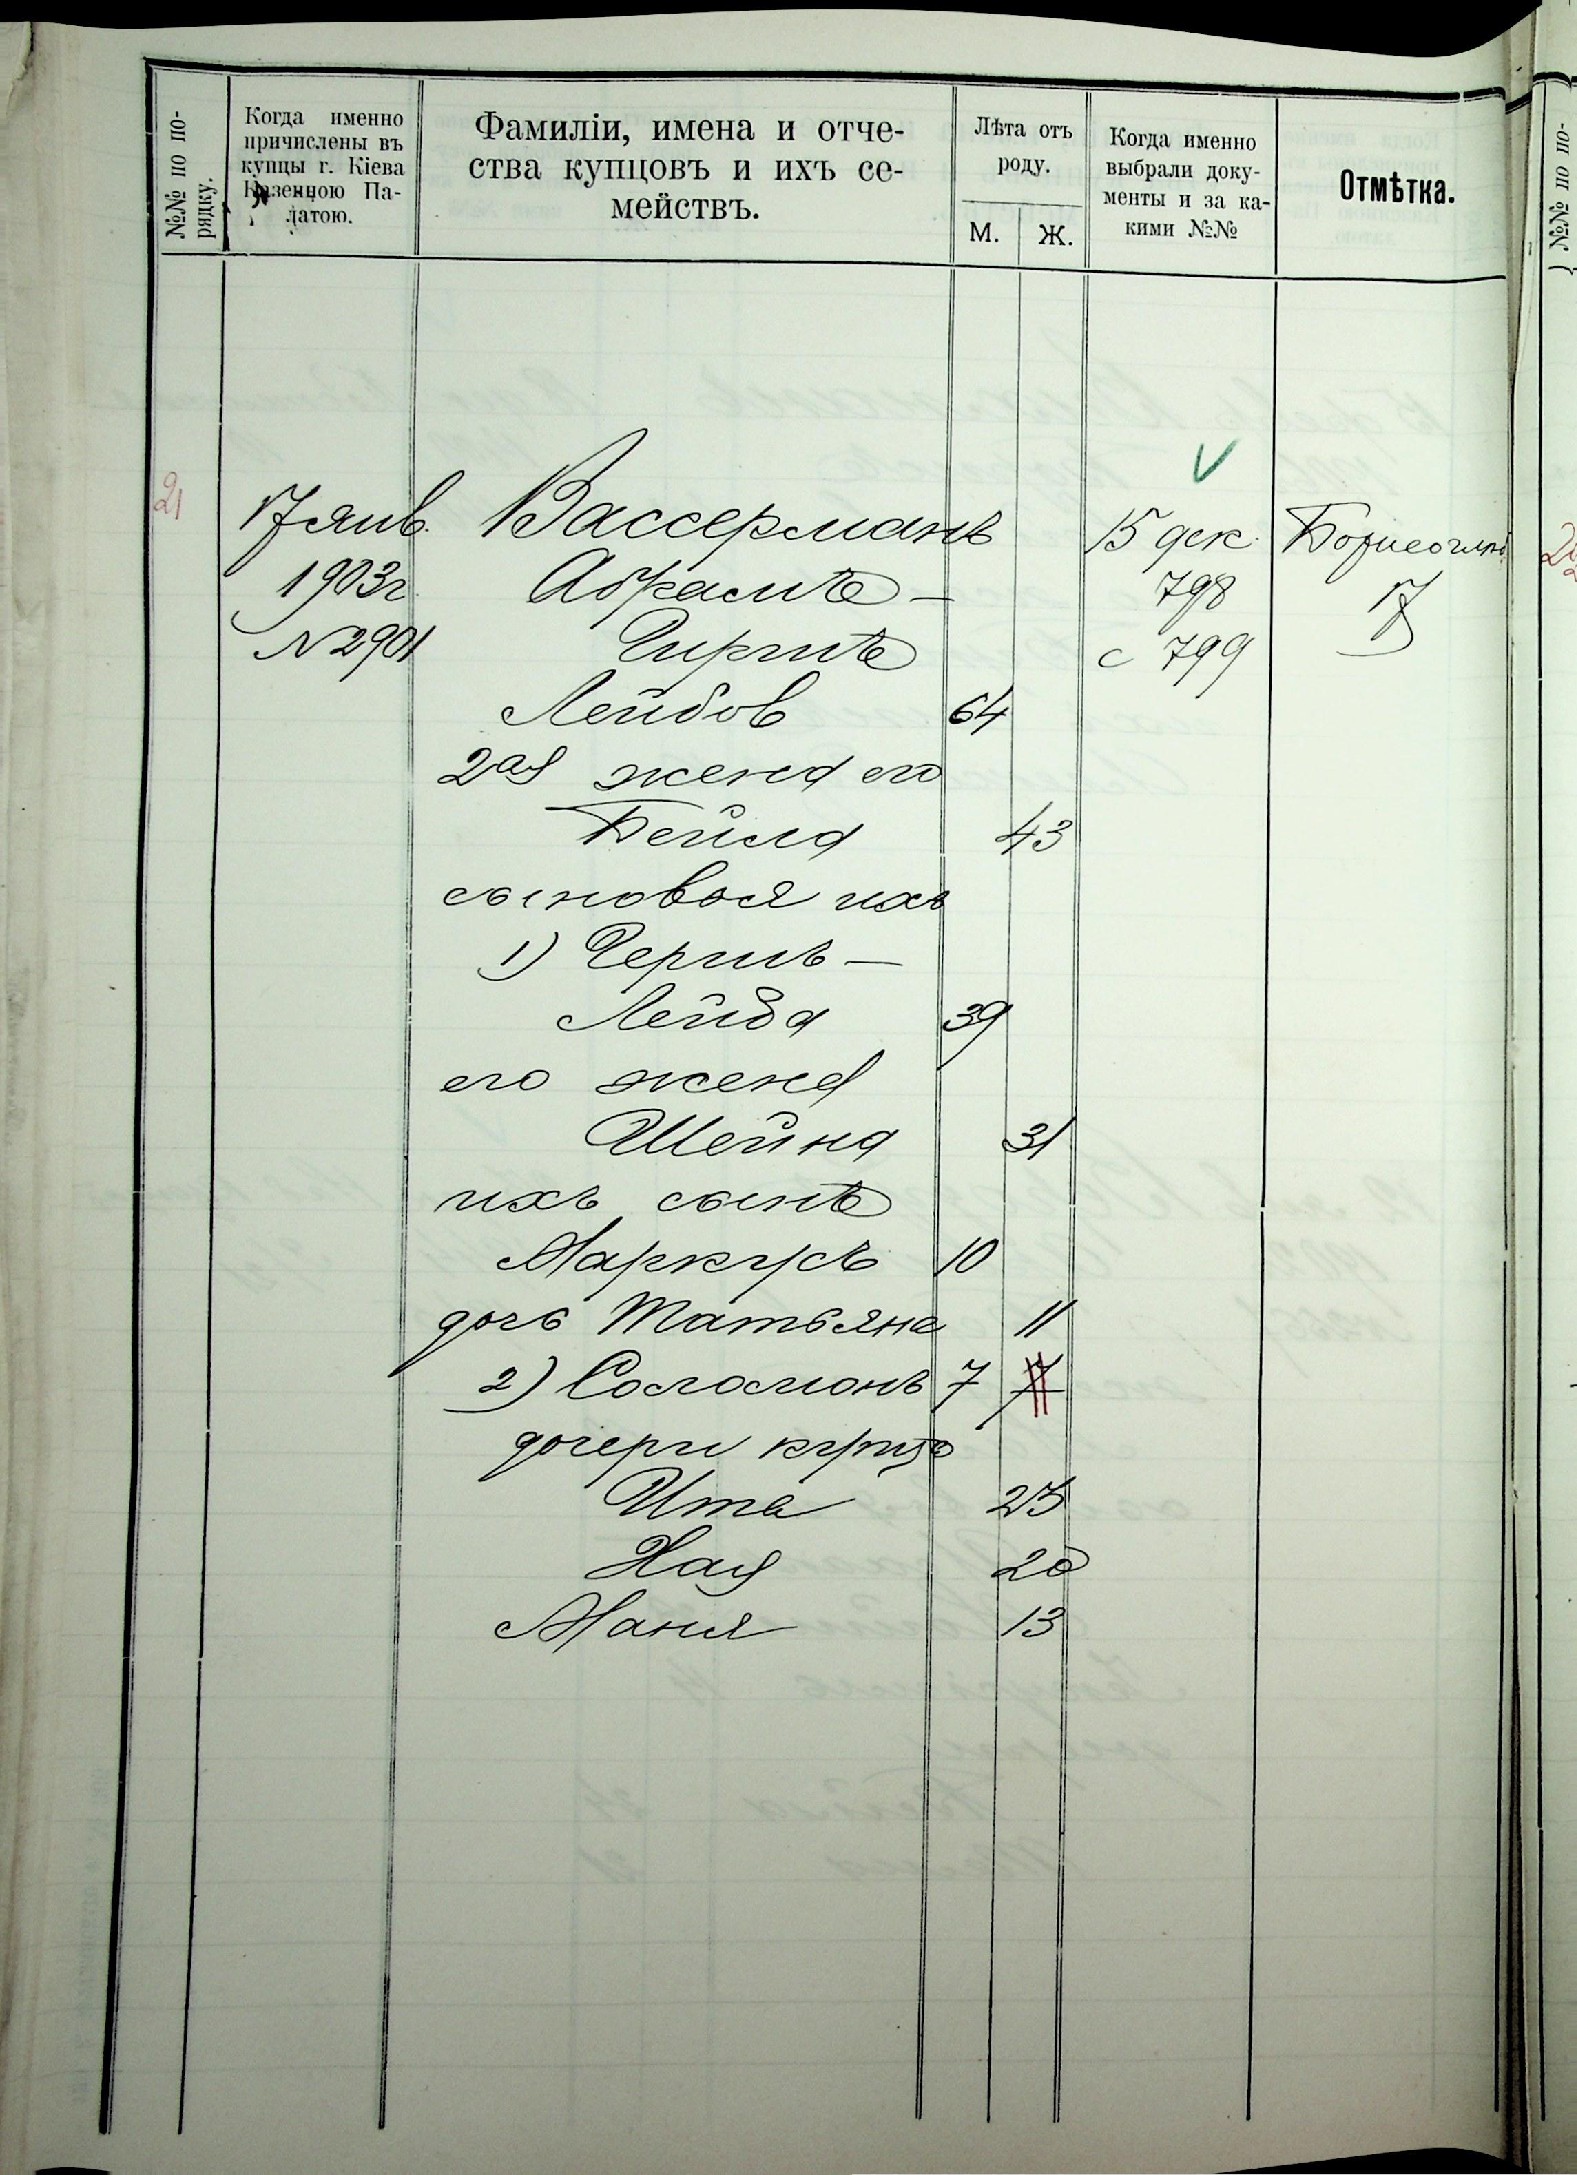 №№ по по-
рядку.
Когда именно
причислены въ
купцы г. Кіева
Казенною Па-
латою.
Фамиліи, имена и отче-
ства купцовъ и ихъ се-
мействъ.
Лѣта отъ
роду.
М. Ж.
Когда именно
выбрали доку-
менты и за ка-
кими №№
Отмѣтка.
№№ по по-
21
17 янв. Вассерманъ 15 дек.
1903г. Абрамъ — 798 17
N 2901 Гиршъ с 799
Лейбов 64
2ая жена его
Бейла 43
сыновья ихъ
1) Гершъ —
Лейба 39
его жена
Шейна 31
ихъ сынъ
Маркусъ 10
дочь Татьяна 11
2) Соломонъ 7 7
дочери купца
Ита 23
Хая 20
Маня 13